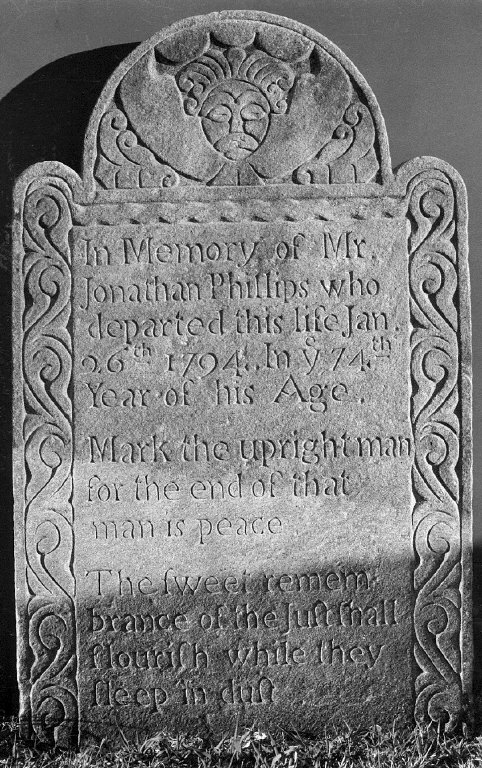 In Memory of Mr.
Jonathan Phillips who
departed this life Jan.
26th 1794. In ye 74th
Year of his Age.
Mark the upright man
for the end of that
man is peace
The ſweet remem-
brance of the Juſt ſhall
flouriſh while they
ſleep in duſt